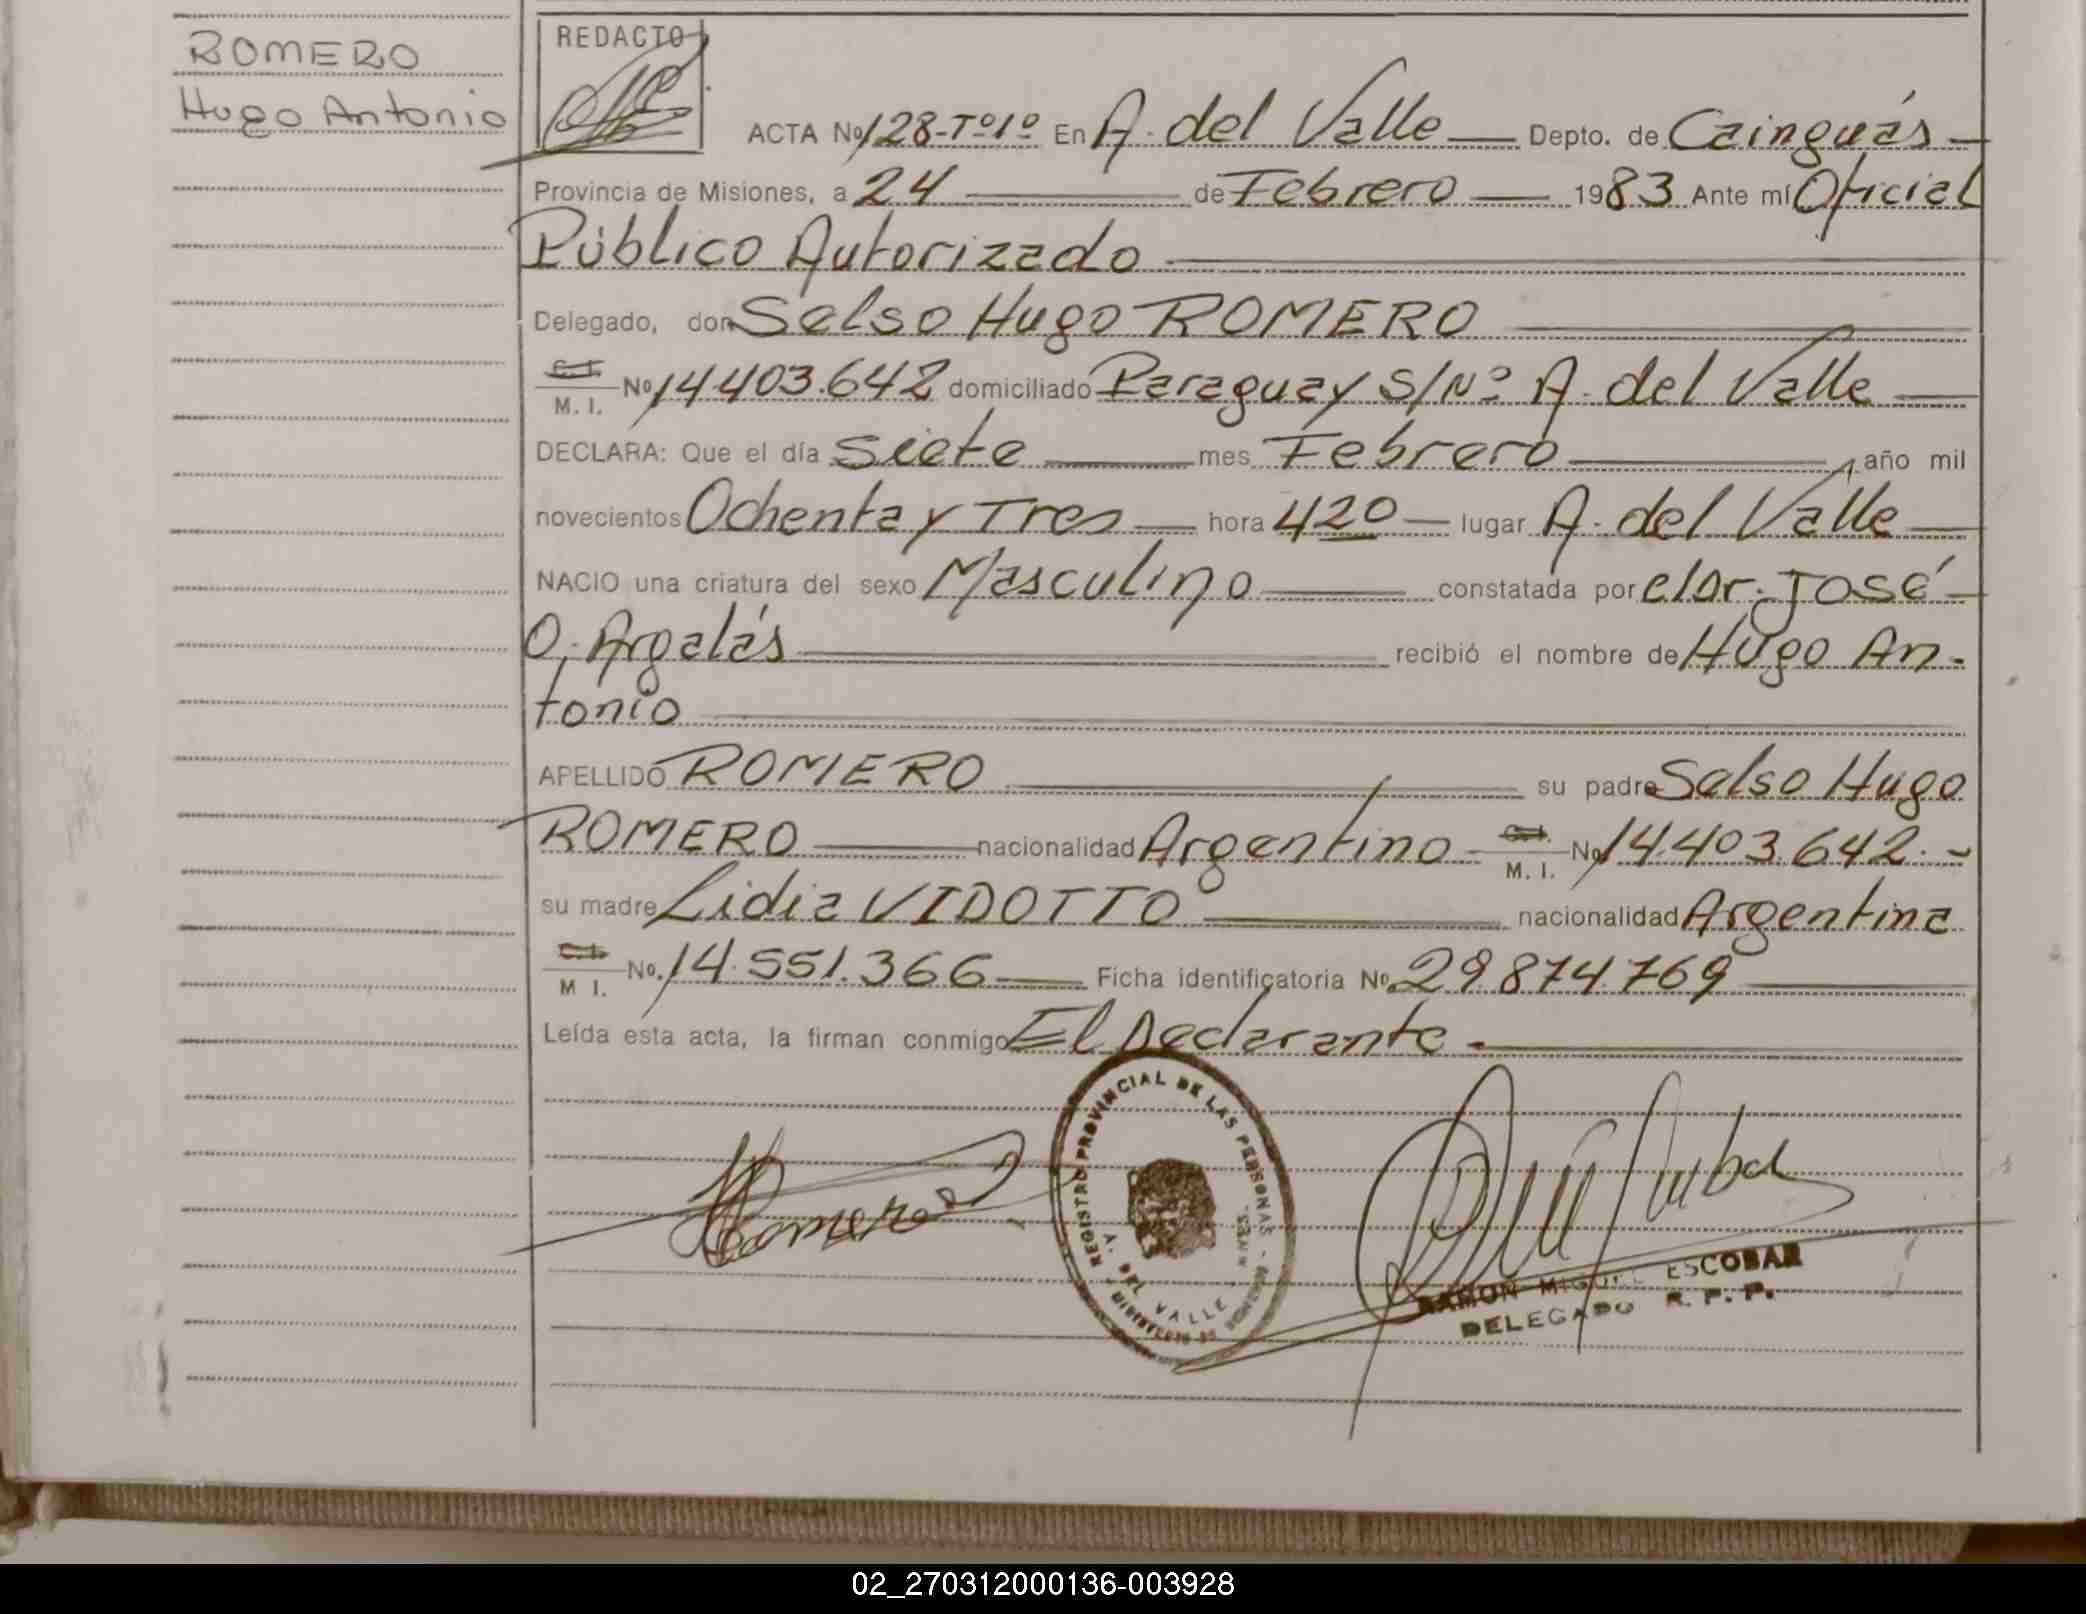 ROMERO
Hugo Antonio
REDACTO
ACTA Nº 128-Tº1º En A. del Valle Depto. de Cainguás
Provincia de Misiones, a 24 de Febrero 1983 Ante mí Oficial
Público Autorizado
Delegado, don Selso Hugo ROMERO
C.I.
M. I. Nº 14.403.642 domiciliado Paraguay S/Nº A. del Valle
DECLARA: Que el día Siete mes Febrero año mil
novecientos Ochenta y Tres hora 4 20 lugar A. del Valle
NACIO una criatura del sexo Masculino constatada por el Dr. José
O. Argalás recibió el nombre de Hugo An-
tonio
APELLIDO ROMERO su padre Selso Hugo
ROMERO nacionalidad Argentino C.I. M. I. Nº 14.403.642.-
su madre Lidia VIDOTTO nacionalidad Argentina
C.I.
M I. No. 14.551.366 Ficha identificatoria Nº 29.874.769
Leída esta acta, la firman conmigo El Declarante.-
REGISTRO PROVINCIAL DE LAS PERSONAS
A. DEL VALLE
HRomero
RAMON MIGUEL ESCOBAR
DELEGADO R. P. P.
02_270312000136-003928